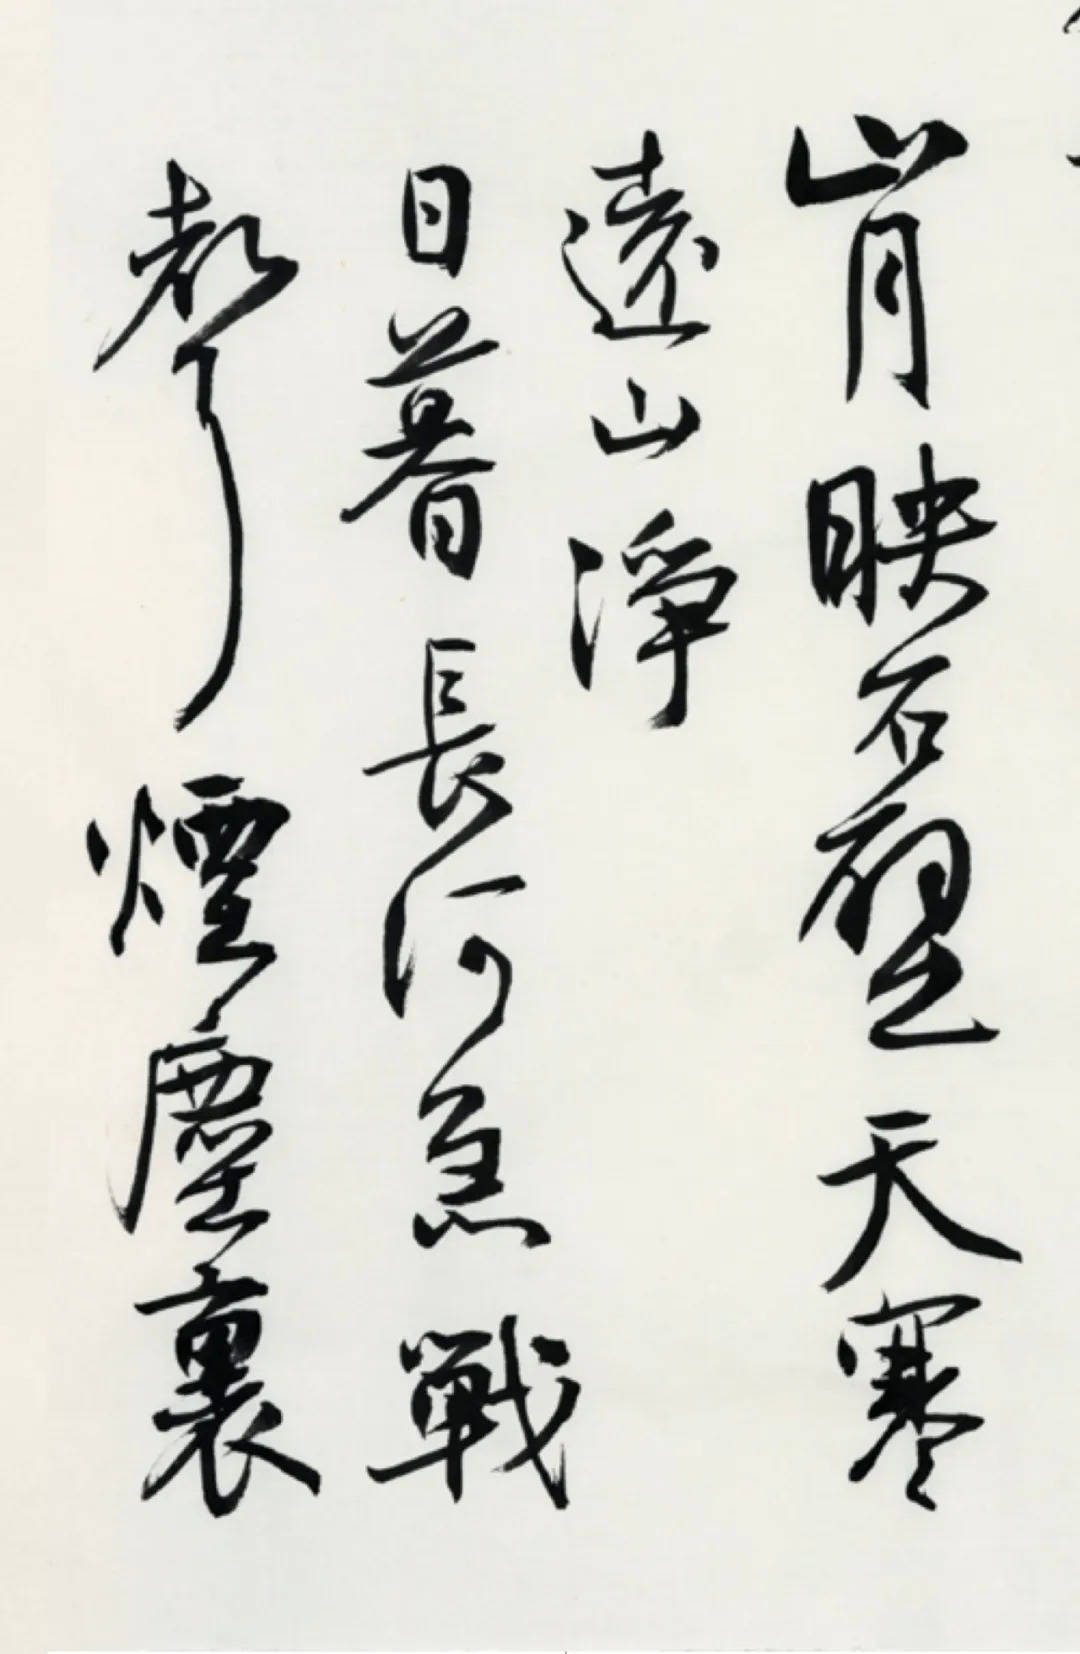 山月映石壁天寒
遠山淨
日暮長河急戰
聲煙塵裏